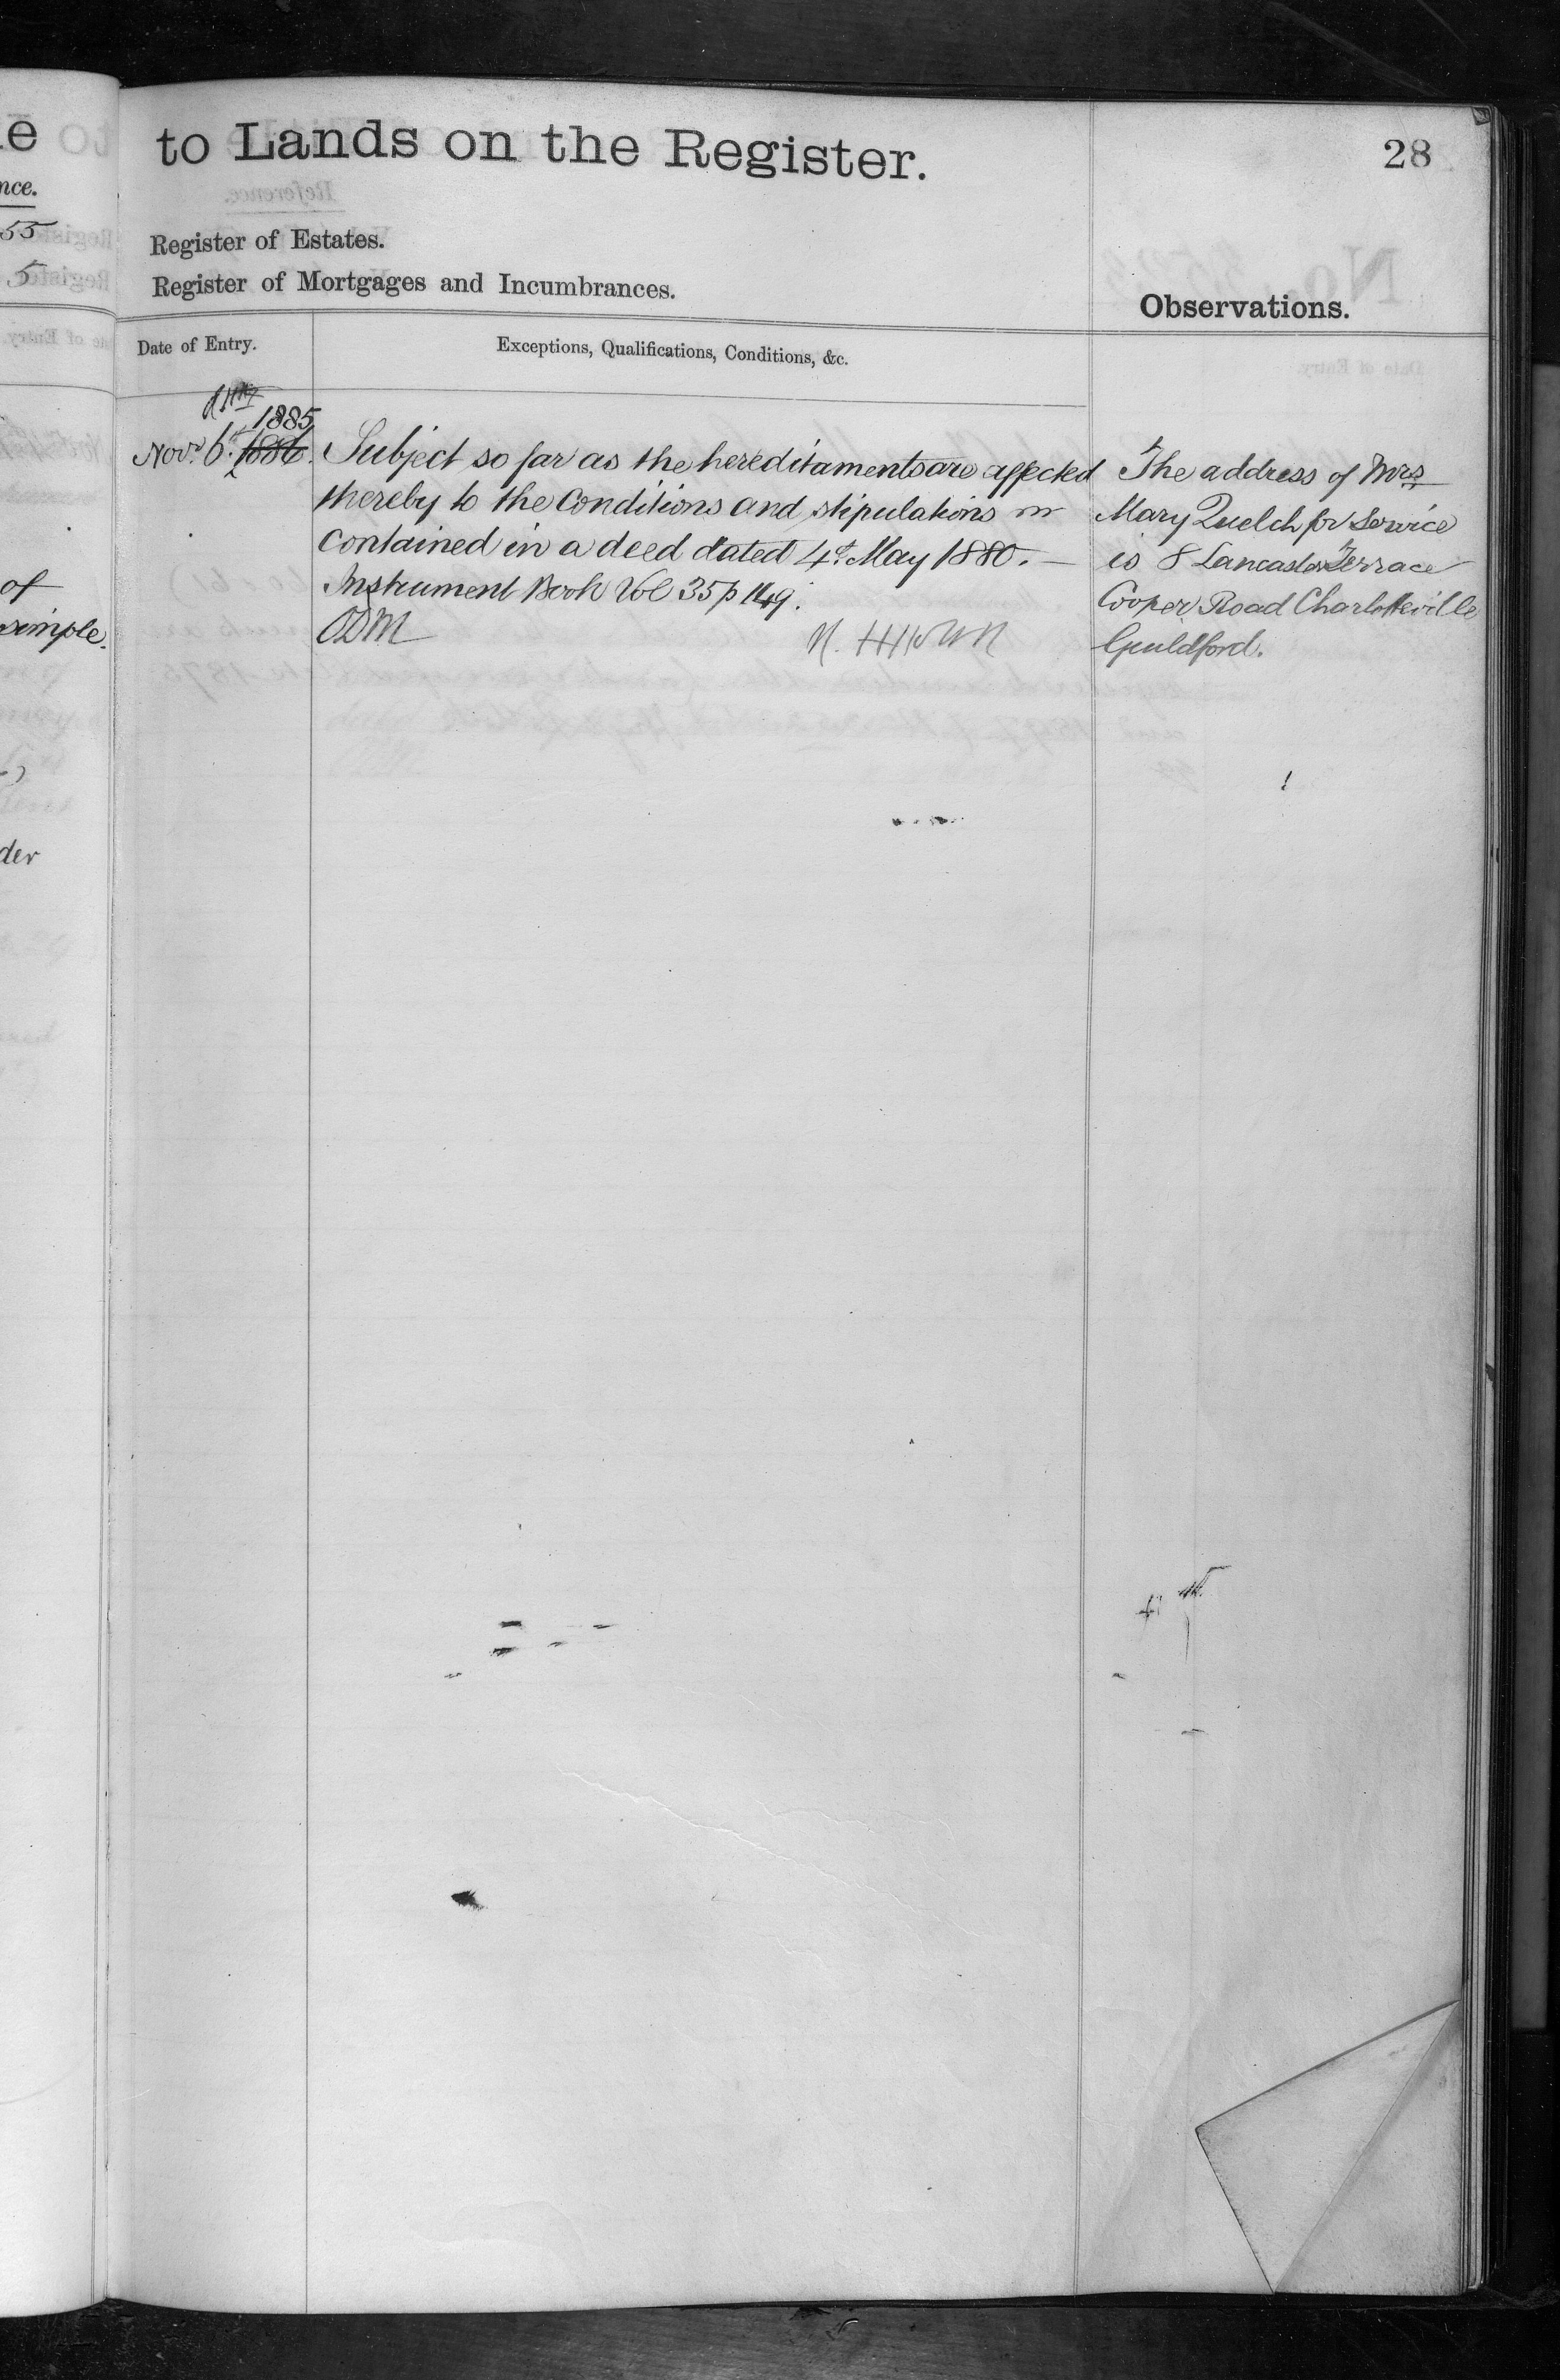 to Lands on the Register.
28
Register of Estates.
Register of Mortgages and Incumbrances.
Observations.
Date of Entry.
Exceptions, Qualifications, Conditions, &c.
1885
Novr. 6th 1886.
Subject so far as the hereditaments are affected
thereby to the conditions and stipulations
contained in a deed dated 4th May 1880. —
Instrument Book Vol 35 p 149.
ODM
The address of Mrs
Mary Quelch for Service
is 8 Lancaster Terrace
Cooper Road Charlotteville
Guildford.
nce.
55
5
of
simple.
der